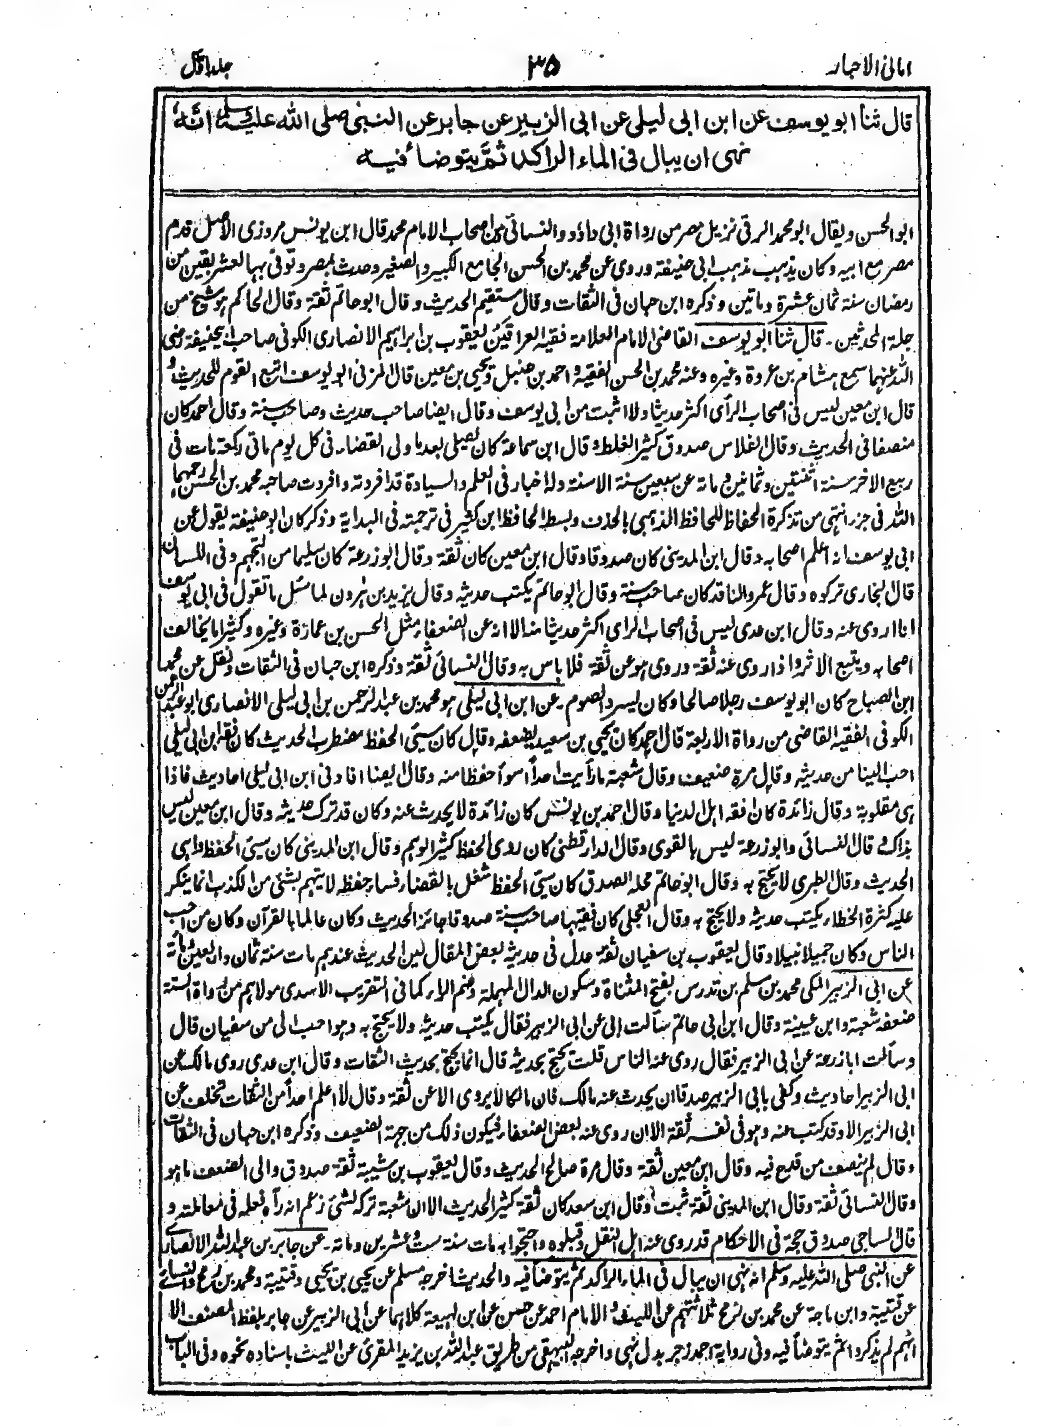 امانی الاحبار
۳۵
جلد اول
قال ثنا ابو يوسف عن ابن ابى ليلى عن ابى الزبير عن جابر عن النبى صلى الله عليه وسلم انه
نهى ان يبال فى الماء الراكد ثم يتوضأ فيه
ابو الحسن ويقال ابو محمد الرقى نزيل مصر من رواة ابى داؤد والنسائى من اصحاب الامام محمد قال ابن يونس مروزى الاصل قدم
مصر مع ابيه وكان يذهب مذهب ابى حنيفة وروى عن محمد بن الحسن الجامع الكبير والصغير وحدث بمصر وتوفى بها لعشر بقين من
رمضان سنة ثمان عشرة ومأتين وذكره ابن حبان فى الثقات وقال مستقيم الحديث وقال ابو حاتم ثقة وقال الحاكم هو شيخ من
جلة المحدثين۔ قال ثنا ابو يوسف القاضى الامام العلامة فقيه العراقين يعقوب بن ابراهيم الانصارى الكوفى صاحب ابى حنيفة رضى
الله عنهما سمع هشام بن عروة وغيره وعنه محمد بن الحسن الفقيه و احمد بن حنبل ويحيى بن معين قال المزنى ابو يوسف اتبع القوم للحديث و
قال ابن معين ليس فى اصحاب الرأى اكثر حديثا ولا اثبت من ابى يوسف وقال ايضا صاحب حديث وصاحب سنة وقال احمد كان
منصفا فى الحديث وقال الفلاس صدوق كثير الغلط وقال ابن سماعة كان يصلى بعد ما ولى القضاء فى كل يوم مائتى ركعة مات فى
ربيع الاخر سنة اثنتين وثمانين ومائة عن سبعين سنة الا سنة وله اخبار فى العلم والسيادة قد افردته وافردت صاحبه محمد بن الحسن رحمهما
الله فى جزء انتهى من تذكرة الحفاظ للحافظ الذهبى بالحذف وبسط الحافظ ابن كثير فى ترجمته فى البداية وذكر كان ابو حنيفة يقول عن
ابى يوسف انه اعلم اصحابه وقال ابن المدينى كان صدوقا وقال ابن معين كان ثقة وقال ابو زرعة كان سليما من التجهم وفى اللسان
قال البخارى تركوه وقال عمرو الناقد كان صاحب سنة وقال ابو حاتم يكتب حديثه وقال يزيد بن هرون لما سئل ما تقول فى ابى يوسف
انا اروى عنه وقال ابن عدى ليس فى اصحاب الراى اكثر حديثا منه الا انه عن الضعفاء مثل الحسن بن عمارة وغيره وكثيرا ما يخالف
اصحابه ويتبع الاثر واذا روى عنه ثقة وروى هو عن ثقة فلا باس به وقال النسائى ثقة وذكره ابن حبان فى الثقات ونقل عن محمد
ابن الصباح كان ابو يوسف رجلا صالحا وكان يسرد الصوم۔ عن ابن ابى ليلى هو محمد بن عبد الرحمن بن ابى ليلى الانصارى ابو عبد الرحمن
الكوفى الفقيه القاضى من رواة الاربعة قال احمد كان يحيى بن سعيد يضعفه وقال كان سيئ الحفظ مضطرب الحديث كان فقه ابن ابى ليلى
احب الينا من حديثه وقال مرة ضعيف وقال شعبة ما رأيت احدا اسوأ حفظا منه وقال ايضا افادنى ابن ابى ليلى احاديث فاذا
هى مقلوبة وقال زائدة كان افقه اهل الدنيا وقال احمد بن يونس كان زائدة لا يحدث عنه وكان قد ترك حديثه وقال ابن معين ليس
بذاك وقال النسائى وابو زرعة ليس بالقوى وقال الدارقطنى كان ردى الحفظ كثير الوهم وقال ابن المدينى كان سيئ الحفظ واهى
الحديث وقال الطبرى لا يحتج به وقال ابو حاتم محله الصدق كان سيئ الحفظ شغل بالقضاء فساء حفظه لا يتهم بشئ من الكذب انما ينكر
عليه كثرة الخطاء يكتب حديثه ولا يحتج به وقال العجلى كان فقيها صاحب سنة صدوقا جائز الحديث وكان عالما بالقرآن وكان من احب
الناس وكان جميلا نبيلا وقال يعقوب بن سفيان ثقة عدل فى حديثه بعض المقال لين الحديث عندهم مات سنة ثمان واربعين ومائة
عن ابى الزبير المكى محمد بن مسلم بن تدرس بفتح المثناة وسكون الدال المهملة وضم الراء كما فى التقريب الاسدى مولاهم من رواة الستة
ضعفه شعبة وابن عيينة وقال ابن ابى حاتم سألت ابى عن ابى الزبير فقال يكتب حديثه ولا يحتج به وهو احب الى من سفيان قال
وسألت ابا زرعة عن ابى الزبير فقال روى عنه الناس قلت يحتج بحديثه قال انما يحتج بحديث الثقات وقال ابن عدى روى مالك عن
ابى الزبير احاديث وكفى بابى الزبير صدقا ان يحدث عنه مالك فان مالكا لا يروى الا عن ثقة وقال لا اعلم احدا من الثقات تخلف عن
ابى الزبير الا وقد كتب عنه وهو فى نفسه ثقة الا ان روى عنه بعض الضعفاء فيكون ذلك من جهة الضعيف وذكره ابن حبان فى الثقات
وقال لم ينصف من قدح فيه وقال ابن معين ثقة وقال مرة صالح الحديث وقال يعقوب بن شيبة ثقة صدوق والى الضعف ما هو
وقال النسائى ثقة وقال ابن المدينى ثقة ثبت وقال ابن سعد كان ثقة كثير الحديث الا ان شعبة تركه لشئ زعم انه رأه فعله فى معاملته و
قال الساجى صدوق حجة فى الاحكام قد روى عنه اهل النقل وقبلوه واحتجوا به مات سنة ست وعشرين ومائة۔ عن جابر بن عبد الله الانصارى
عن النبى صلى الله عليه وسلم انه نهى ان يبال فى الماء الراكد ثم يتوضأ فيه والحديث اخرجه مسلم عن يحيى بن يحيى وقتيبة ومحمد بن رمح والنسائى
عن قتيبة وابن ماجة عن محمد بن رمح ثلاثتهم عن الليث و الامام احمد عن حسن عن ابن لهيعة كلاهما عن ابى الزبير عن جابر بلفظ المصنف الا
انهم لم يذكروا ثم يتوضأ فيه وفى رواية احمد زجر بدل نهى واخرجه البيهقى من طريق عبد الله بن يزيد المقرئ عن الليث باسناده نحوه وفى الباب